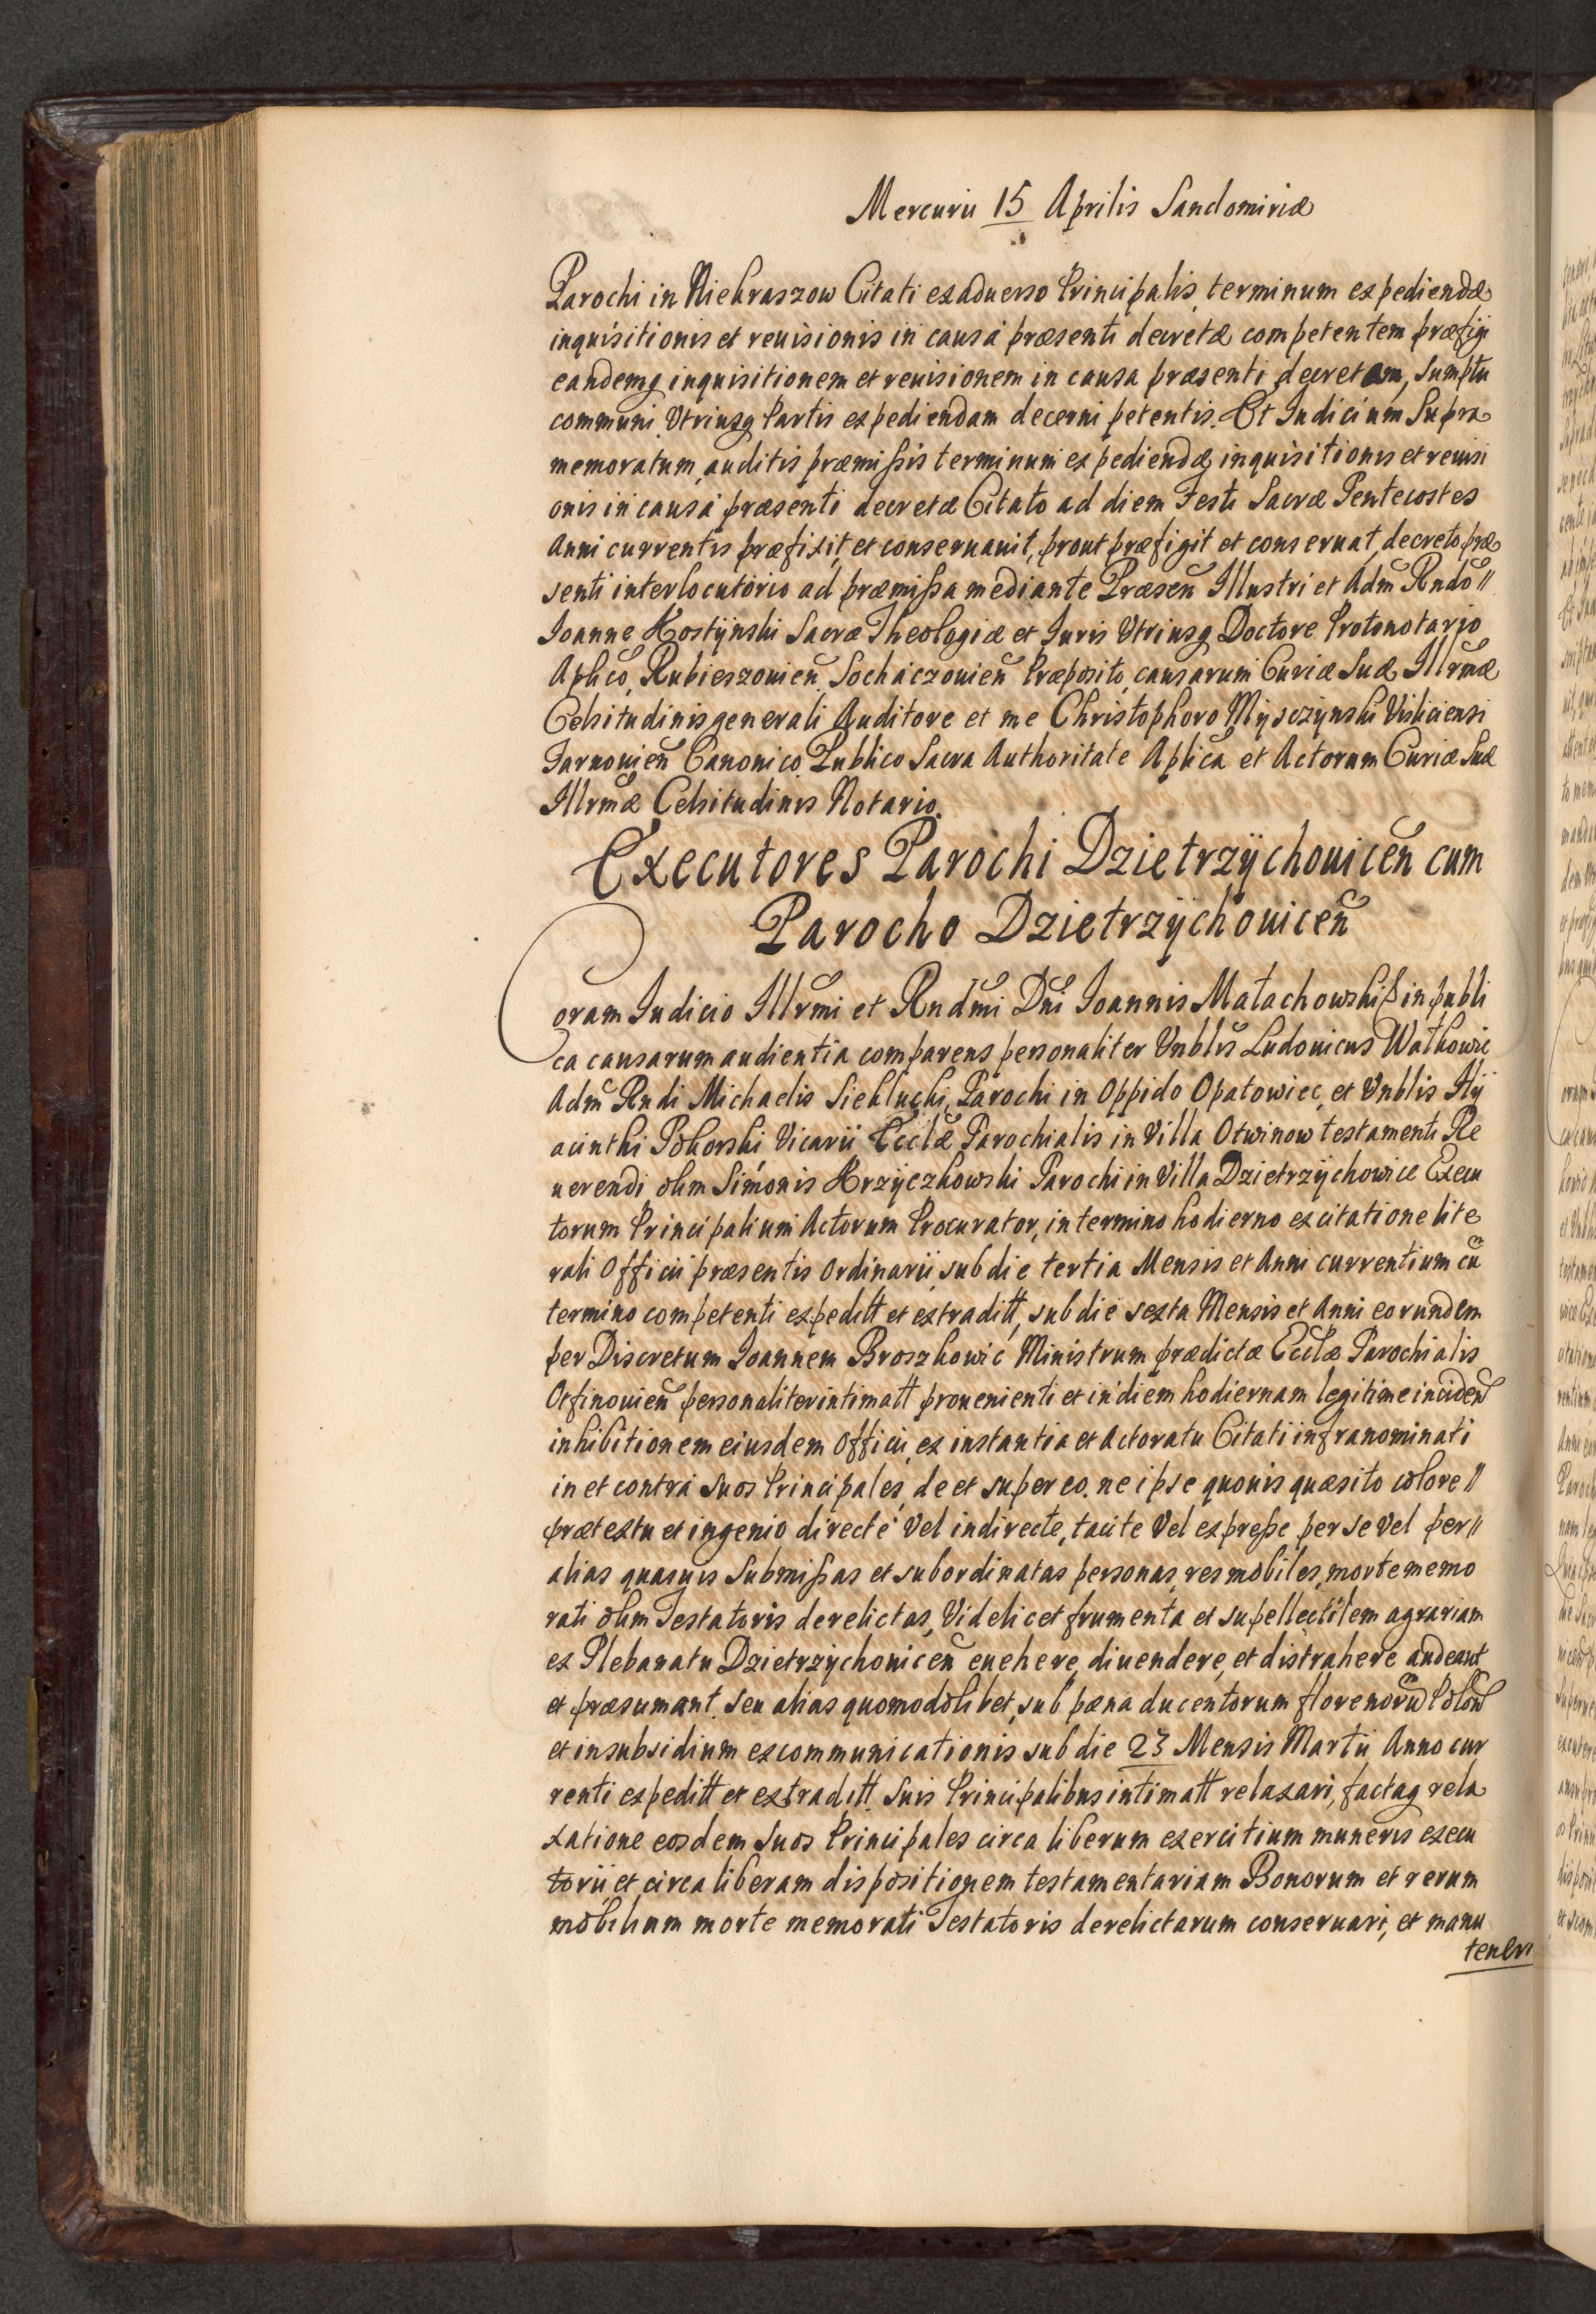 Mercurii 15 Aprilis Sandomiriæ
Parochi in Niekraszow Citati ex aduerso Principalis, terminum expediendæ
inquisitionis et reuisionis in causa præsenti decretæ competentem præfigi
eandemq inquisitionem et reuisionem in causa præsenti decretam, sumptu
communi Utriusq Partis expediendam decerni petentis. Et Judicium Supra
memoratum, auditis præmißis terminum expediendæ inquisitionis et reuisi
onis in causa præsenti decretæ Citato ad diem Festi Sacræ Pentecostes
Anni currentis præfixit, et conseruauit, prout præfigit et conseruat, decreto præ
senti interlocutorio ad præmißa mediante Præseñ Illustri et Adm̃ Rndo //
Joanne Kostÿnski Sacræ Theologiæ et Juris Utriusq Doctore Protonotario
Aplico, Rubieszouien̄ Sochaczouien̄ Præposito, causarum Curiæ Suæ Illrmæ
Celsitudinis generali Auditore et me Christophoro Mÿsczÿnski Visliciensi
Tarnouien̄ Canonico Publico Sacra Authoritate Aplica et Actorum Curiæ Suæ
Illrmæ Celsitudinis Notario.
Executores Parochi Dzietrzÿchouicen̄ cum
Parocho Dzietrzÿchouicen̄
Coram Judicio Illrmi et Rndmi Dni Joannis Małachowski ß in publi
ca causarum audientia comparens personaliter Vnblis Ludouicus Wałkowic
Adm̃ Rndi Michaelis Sieklucki, Parochi in Oppido Opatowiec, et Vnblis Hÿ
acinthi Pokorski Vicarii Ecclæ Parochialis in Villa Otwinow testamenti Re
uerendi olim Simonis Krzÿczkowski Parochi in Villa Dzietrzÿchowice Execu
torum Principalium Actorum Procurator, in termino hodierno ex citatione lite
rali Officii præsentis Ordinarii, sub die tertia Mensis et Anni currentium cū
termino competenti expeditt et extraditt, sub die sexta Mensis et Anni eorundem
per Discretum Joannem Broszkowic Ministrum prædictæ Ecclæ Parochialis
Otfinouien̄ personaliter intimatt prouenienti et in diem hodiernam legitime inciden̄
inhibitionem eiusdem Officii, ex instantia et Actoratu Citati infranominati
in et contra Suos Principales, de et super eo. ne ipse quouis quæsito colore //
prætextu et ingenio directe vel indirecte, tacite Vel expreße per se vel per //
alias quasuis submißas et subordinatas personas, res mobiles, morte memo
rati olim Testatoris derelictas, Videlicet frumenta et supellectilem agrariam
ex Plebanatu Dzietrzÿchouicen̄ euehere, diuendere, et distrahere audeant
et præsumant. seu alias quomodolibet, sub pæna ducentorum florenorū Polon̄
et in subsidium excommunicationis sub die 23 Mensis Martii Anno cur
renti expeditt et extraditt. Suis Principalibus intimatt relaxari, factaq rela
xatione eosdem Suos Principales circa liberum exercitium muneris execu
torii et circa liberam dispositionem testamentariam Bonorum et rerum
mobilium morte memorati Testatoris derelictarum conseruari, et manu
teneri